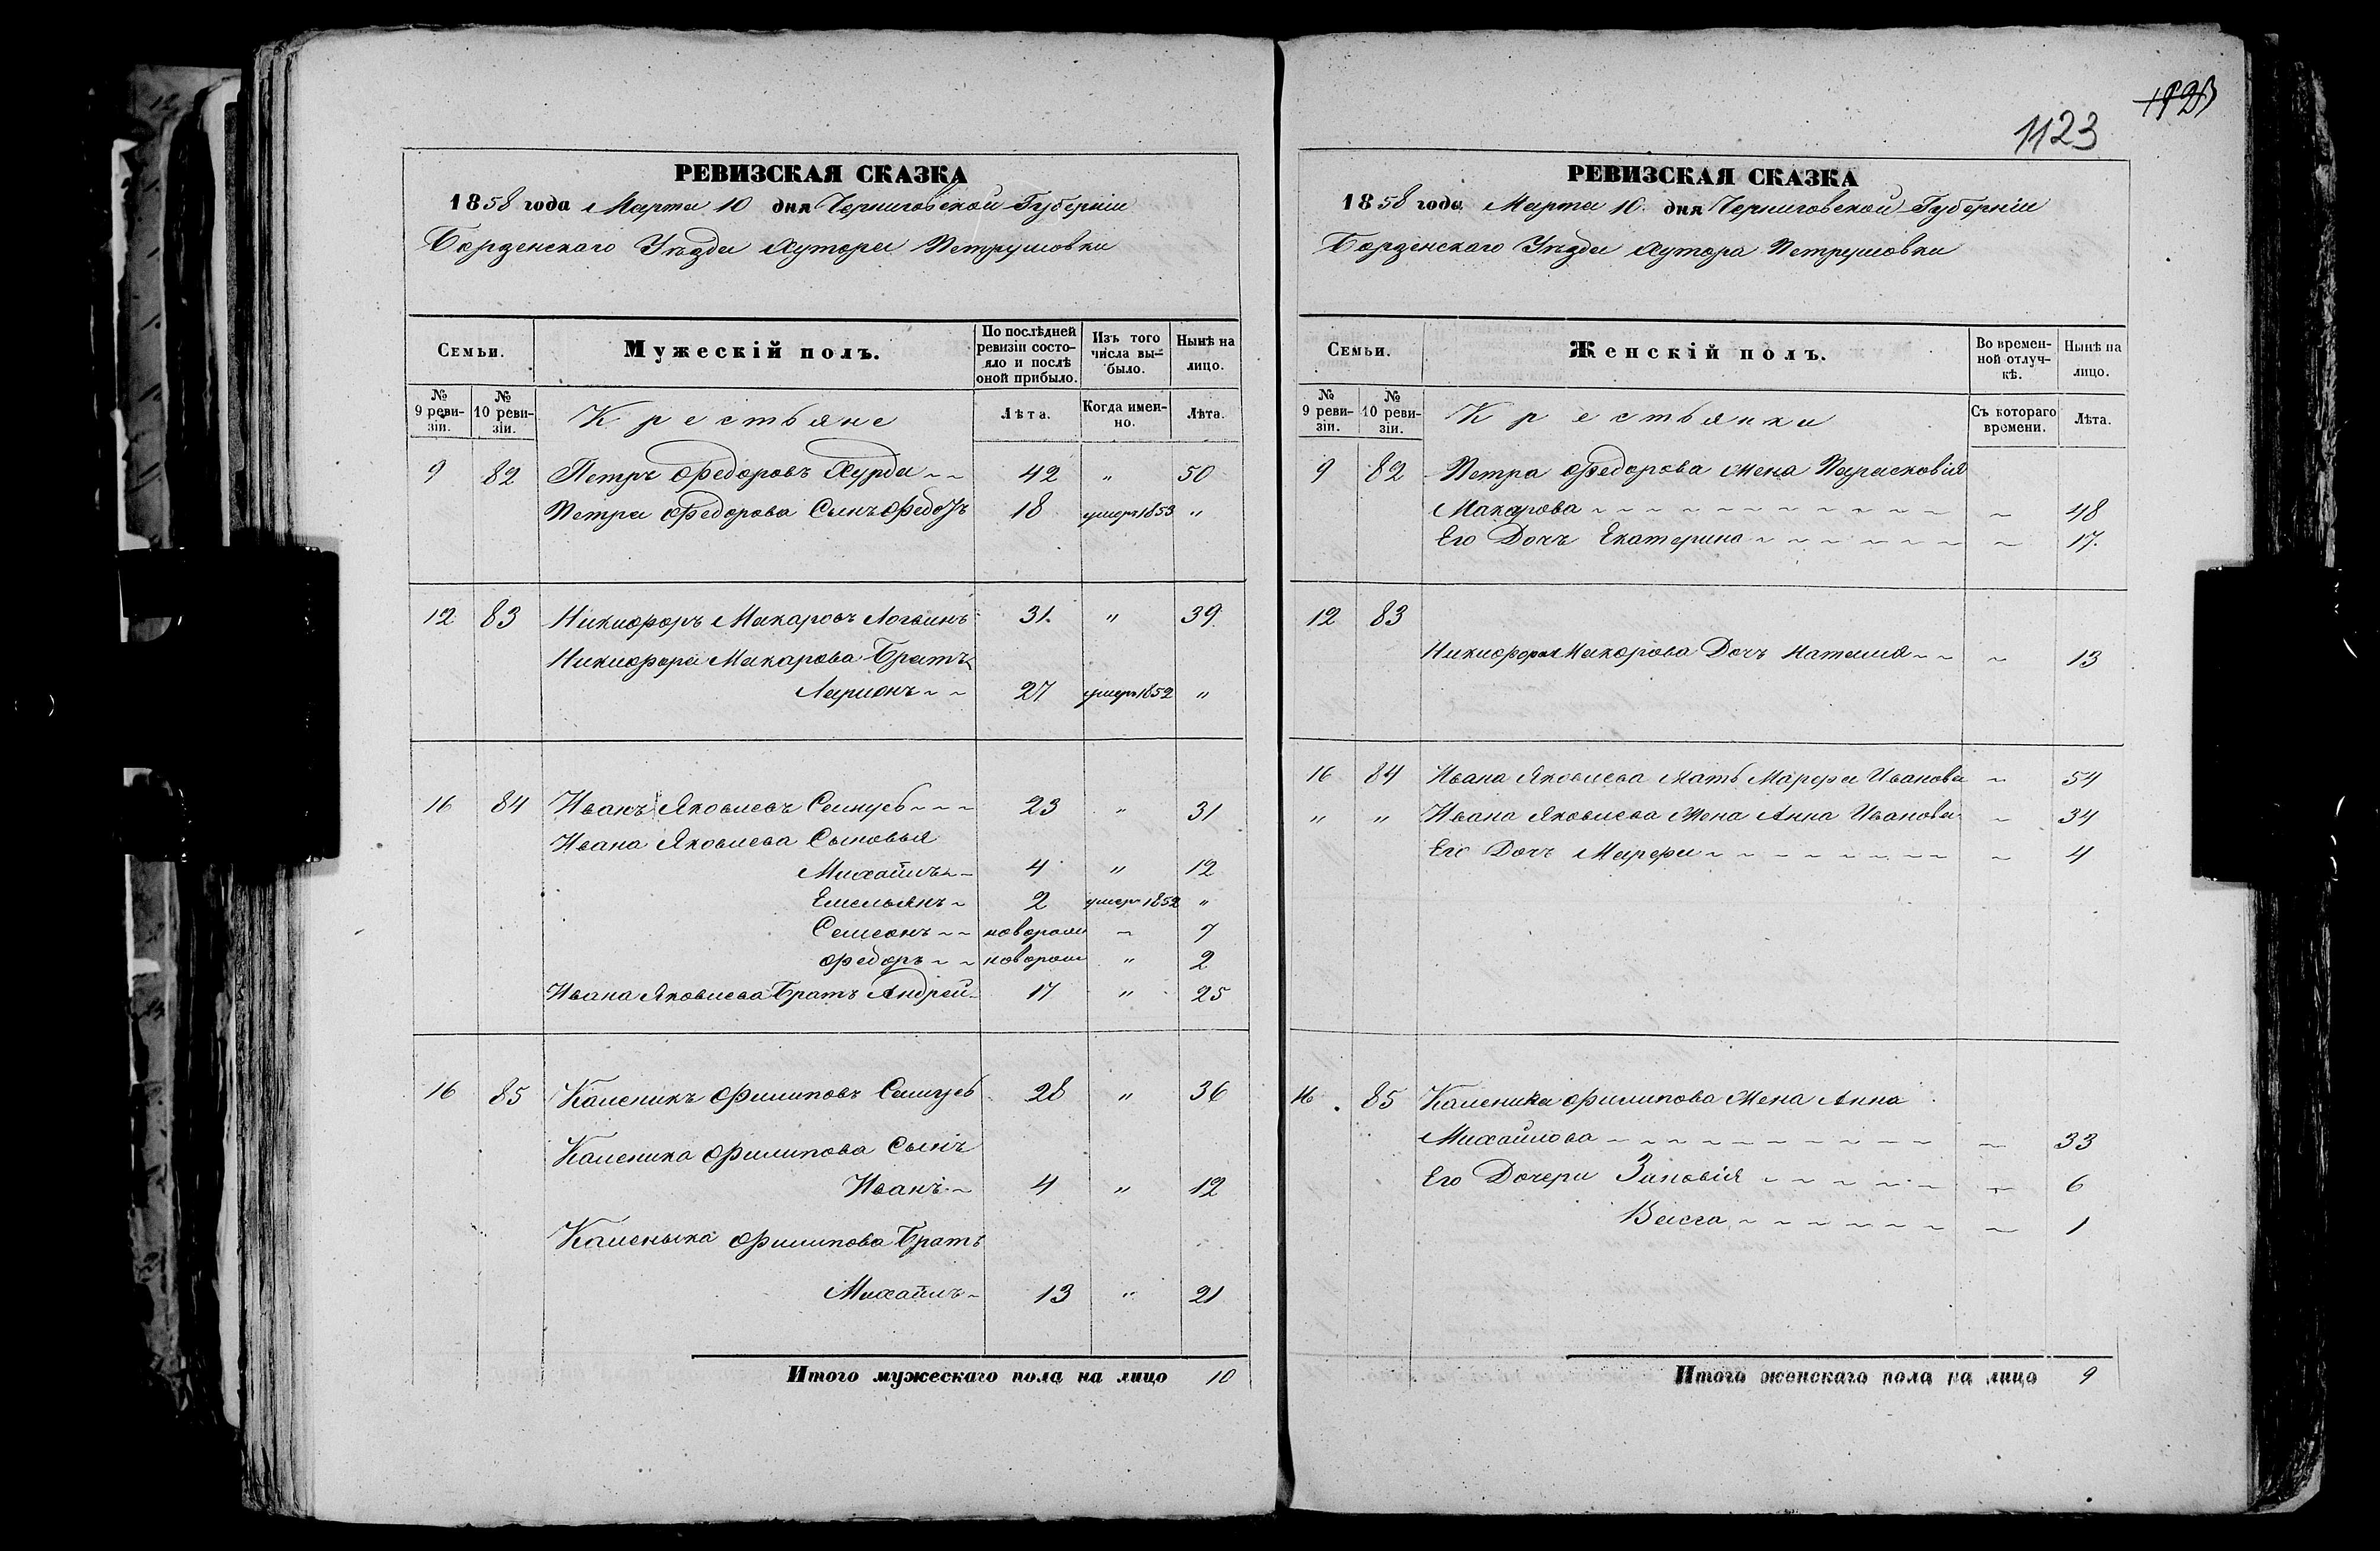 РЕВИЗСКАЯ СКАЗКА
1858 года Марта 10 дня Черниговской Губерніи
Борзенскаго Уѣзда Хутора Петрушовки
Семьи.
Мужескій полъ.
По послѣдней ревизіи состояло и послѣ оной прибыло.
Изъ того числа выбыло.
Нынѣ на лицо.
№ 9 ревизіи.
№ 10 ревизіи.
Крестьяне
Лѣта.
Когда именно.
Лѣта.
9 82 Петръ Федоровъ Хурда 42 " 50
Петра Федорова Сынъ Федоръ 18 умеръ 1853 "
12 83 Никифоръ Макаровъ Логвинъ 31 " 39
Никифора Макарова Братъ
Ларионъ 27 умеръ 1852 "
16 84 Иванъ Яковлевъ 23 " 31
Ивана Яковлева Сыновья
Михайлъ 4 " 12
Емельянъ 2 умеръ 1852 "
Семенъ поворож 7
Федоръ новорож " 2
Ивана Яковлева Братъ Андрей 17 " 25
16 85 Каленикъ Филиповъ 28 " 36
Каленика Филипова Сынъ
Иванъ 4 " 12
Каленыка Филипова Братъ
Михайлъ 13 " 21
Итого мужескаго пола на лицо 10
1123
РЕВИЗСКАЯ СКАЗКА
1858 года Марта 10 дня Черниговской Губерніи
Борзенскаго Уѣзда Хутора Петрушовки
Семьи.
Женскій полъ.
Во временной отлучкѣ.
Нынѣ на лицо.
№ 9 ревизіи.
№ 10 ревизіи.
Крестьянки
Съ котораго времени.
Лѣта.
9 82 Петра Федорова Жена Парасковія
Макарова 48
Его Дочъ Екатерина 17
12 83
Никифора Макарова Дочъ Наталия 13
16 84 Ивана Яковлева Мать Марфа Иванова 54
" " Ивана Яковлева Жена Анна Иванова 34
Его Дочъ Марфа 4
16 85 Каленика Филипова Жена Анна
Михайлова 33
Его Дочери Зиновія 6
Васса 1
Итого женскаго пола на лицо 9